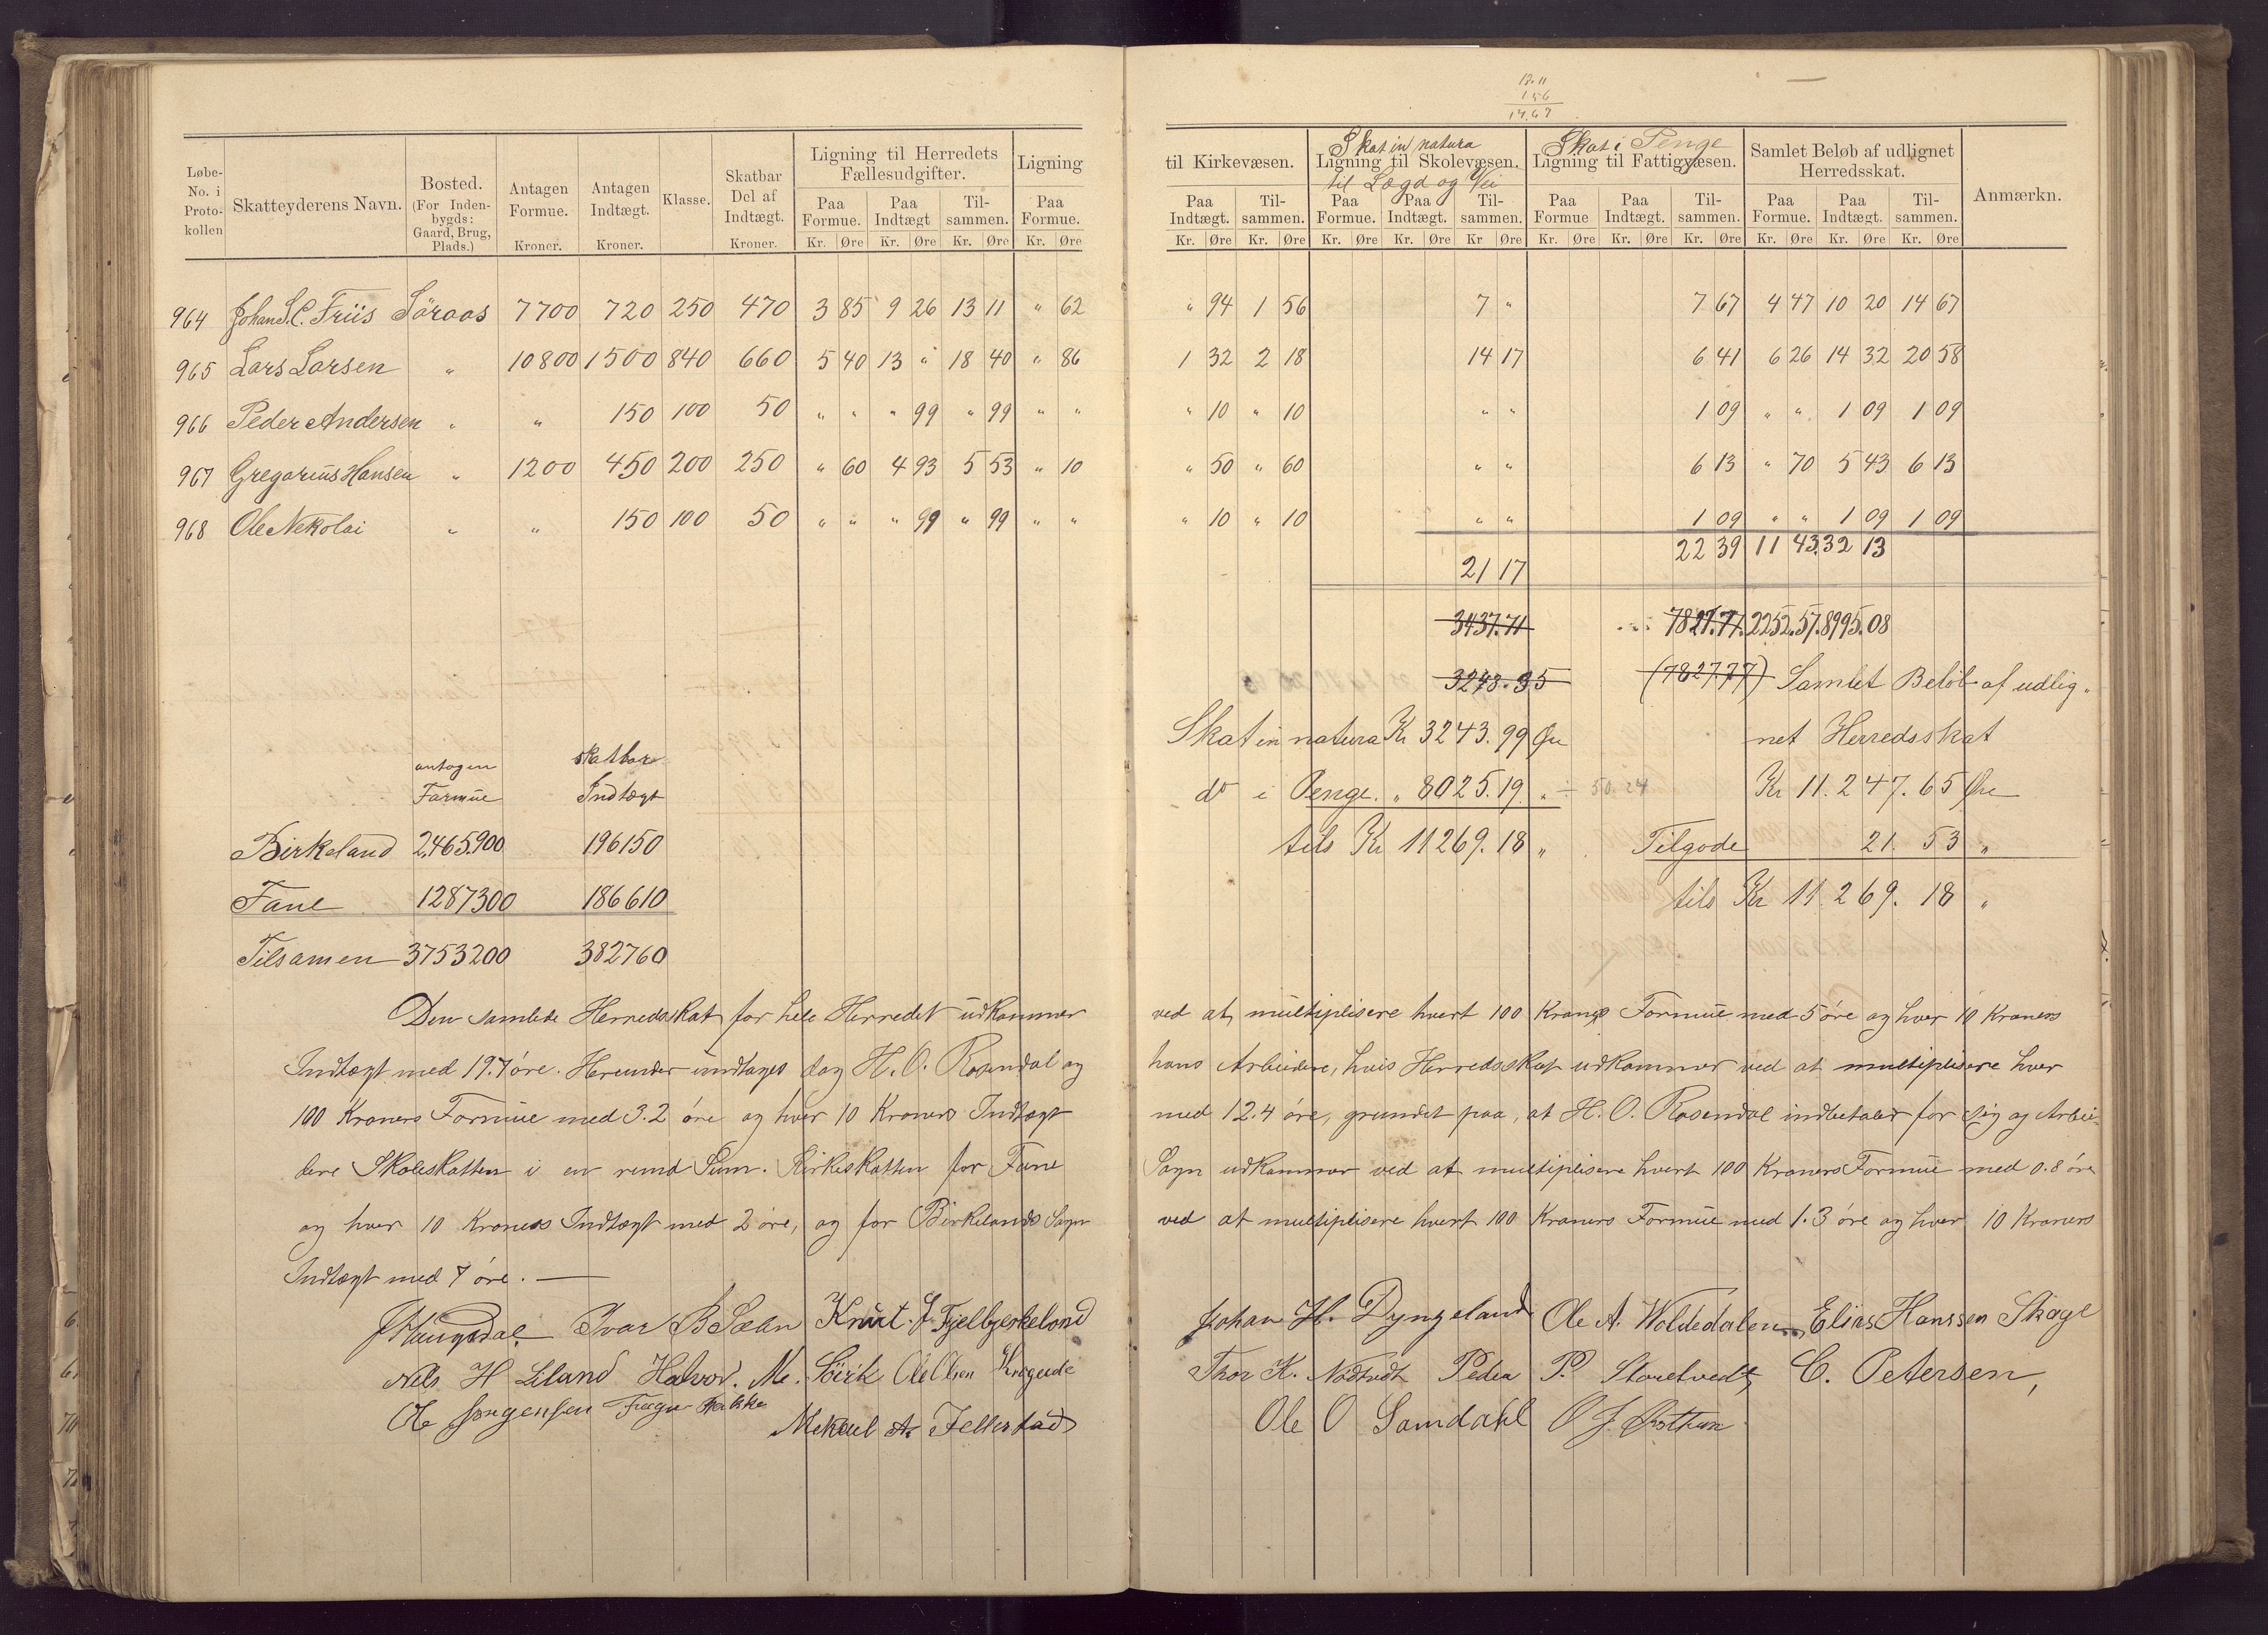 13.11
156
14.67
Løbe- No. i Proto- kollen
Skatteyderens Navn.
Bosted. (For Inden- bygds: Gaard, Brug, Plads.)
Antagen Formue. Kroner.
Antagen Indtægt. Kroner.
Klasse.
Skatbar Del af Indtægt. Kroner.
Ligning til Herredets Fællesudgifter.
Paa Formue. Paa Indtægt Til- sammen.
Kr. Øre Kr. Øre Kr. Øre
Ligning
Paa Formue.
Kr. Øre
til Kirkevæsen.
Paa Indtægt. Til- sammen.
Kr. Øre Kr. Øre
Skat in natura
Ligning til Skolevæsen.
til Lægd og Vei
Paa Formue. Paa Indtægt. Til- sammen.
Kr. Øre Kr. Øre Kr Øre
Skat i Penge
Ligning til Fattigvæsen.
Paa Formue Paa Indtægt. Til- sammen.
Kr. Øre Kr. Øre Kr. Øre
Samlet Beløb af udlignet Herredsskat.
Paa Formue. Paa Indtægt. Til- sammen.
Kr. Øre Kr. Øre Kr. Øre
Anmærkn.
964 Johan S.C. Friis Söraas 7700 720 250 470 3 85 9 26 13 11 " 62 " 94 1 56 7 " 7 67 4 47 10 20 14 67
965 Lars Larsen " 10800 1500 840 660 5 40 13 " 18 40 " 86 1 32 2 18 14 17 6 41 6 26 14 32 20 58
966 Peder Andersen " " 150 100 50 " " " 99 " 99 " " " 10 " 10 " " 1 09 " " 1 09 1 09
967 Gregorius Hansen " 1200 450 200 250 " 60 4 93 5 53 " 10 " 50 " 60 " " 6 13 " 70 5 43 6 13
968 Ole Nekolai " " 150 100 50 " " " 99 " 99 " " " 10 " 10 " " 1 09 " " 1 09 1 09
22 39 11 43 32 13
21 17
3437.71 7827.77. 2252.57. 8995.08
3243.95 (7827.77) Samlet Beløb af udlig-
Skat in natura Kr 3243.99 Øre net Herredsskat
do i Penge. " 8025.19. " ÷ 50.24 Kr 11.247.65 Øre
tils Kr 11269.18 " Tilgode 21. 53 "
tils Kr 11.269.18 "
antagen Formue skatbare Indtægt
Birkeland 2,465.900 196150
Fane 1287300 186610
Tilsamen 3753200 382760
Den samlede Herredsskat for hele Herredet udkommer ved at multiplisere hvert 100 Kroners Formue med 5 øre og hver 10 Kroners
Indtægt med 19.7 øre. Herunder undtages dog H. O. Rosendal og hans Arbeidere, hvis Herredsskat udkommer ved at multiplisere hver
100 Kroners Formue med 3.2 øre og hver 10 Kroners Indtægt med 12.4 øre, grundet paa, at H. O. Rosendal indbetaler for sig og Arbei-
dere Skoleskatten i en rund Sum. Kirkeskatten for Fane Sogn udkommer ved at multiplisere hvert 100 Kroners Formue med 0.8 øre
og hver 10 Kroners Indtægt med 2 øre, og for Birkelands Sogn ved at multiplisere hvert 100 Kroners Formue med 1.3 øre og hver 10 Kroners
Indtægt med 7 øre.
J Haugsdal Ivar B Sælen Knut. J Fjelbjerkeland Johan H. Dyngeland Ole A. Woldedalen Elias Hanssen Skage
Nels H Liland Halvor. M. Sövik Ole Olsen Thor K. Nødtvedt Peder P. Storetvedt, C. Petersen,
Ole Jørgensen Mekael A. Ole O Samdahl O J